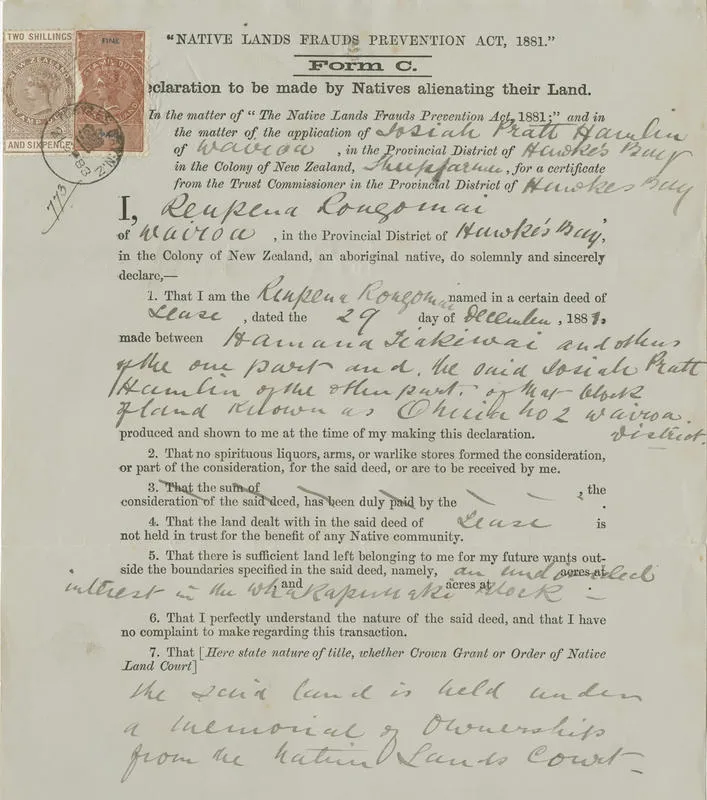 "NATIVE LANDS FRAUDS PREVENTION ACT, 1881."
TWO SHILLINGS
FINE
Form C.
NEW ZEALAND
STAMP DUTY
eclaration to be made by Natives alienating their Land.
In the matter of "The Native Lands Frauds Prevention Act, 1881;" and in
the matter of the application of Josiah Pratt Hamlin
AND SIXPENCE
of Wairoa, in the Provincial District of Hawke's Bay
in the Colony of New Zealand, Sheepfarmer, for a certificate
from the Trust Commissioner in the Provincial District of Hawkes Bay
773
I, Reupena Rongomai
of Wairoa, in the Provincial District of Hawke's Bay,
in the Colony of New Zealand, an aboriginal native, do solemnly and sincerely
declare,—
1. That I am the Reupena Rongomai named in a certain deed of
Lease, dated the 29 day of December, 1881,
made between Hamana Tiakiwai and others
of the one part and the said Josiah Pratt
Hamlin of the other part. of that block
of land known as Ohuia no 2 Wairoa.
produced and shown to me at the time of my making this declaration. District.
2. That no spirituous liquors, arms, or warlike stores formed the consideration,
or part of the consideration, for the said deed, or are to be received by me.
3. That the sum of , the
consideration of the said deed, has been duly paid by the .
4. That the land dealt with in the said deed of Lease is
not held in trust for the benefit of any Native community.
5. That there is sufficient land left belonging to me for my future wants out-
side the boundaries specified in the said deed, namely, an undivided acres at
interest in the Whakapunaki Block – and acres at .
6. That I perfectly understand the nature of the said deed, and that I have
no complaint to make regarding this transaction.
7. That [Here state nature of title, whether Crown Grant or Order of Native
Land Court]
the said land is held under
a memorial of Ownership
from the Native Lands Court –